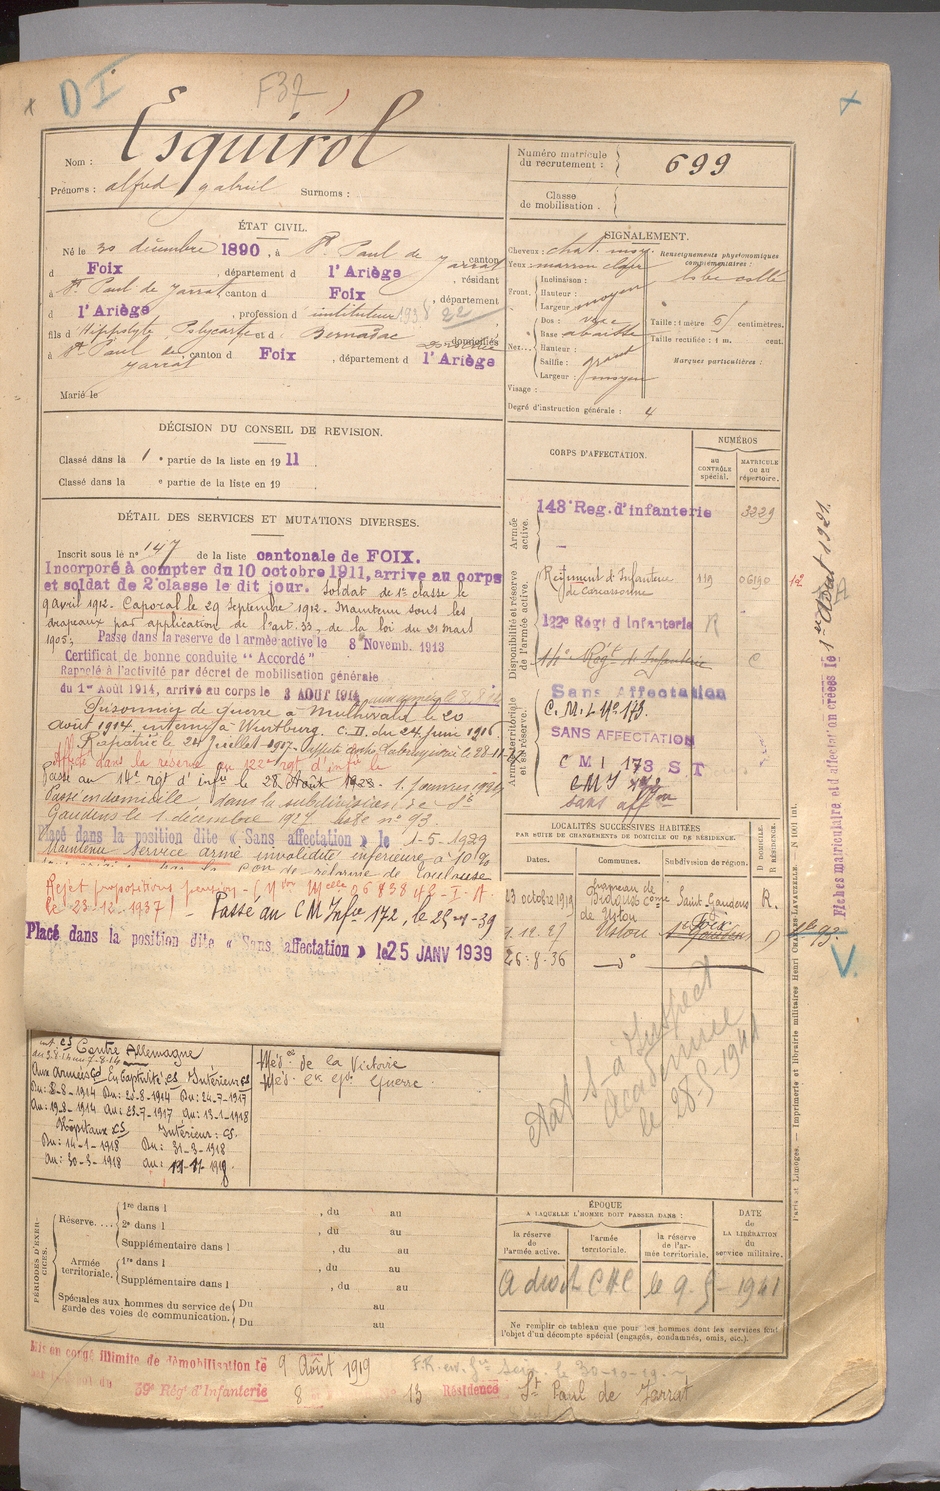 D I
F37
Nom : Esquirol
Prénoms : alfred gabriel Surnoms :
Numéro matricule du recrutement : 699
Classe de mobilisation .
ÉTAT CIVIL.
Né le 30 décembre 1890, à St Paul de Jarrat canton
d Foix , département d l'Ariège , résidant
à St Paul de Jarrat canton d Foix , département
d l'Ariège , profession d instituteur
fils d Hippolyte Polycarpe et d Bernadac domiciliés
à St Paul de Jarrat , canton d Foix , département d l'Ariège
Marié le
SIGNALEMENT.
Cheveux : chat. moy.
Yeux : marron clair
Front. Inclinaison :
Hauteur :
Largeur moyen
Nez... Dos :
Base abaissée
Hauteur :
Saillie : grand
Largeur : moyen
Visage :
Renseignements physionomiques complémentaires :
lobe collé
Taille : 1 mètre 6 centimètres.
Taille rectifiée : 1 m. cent.
Marques particulières :
Degré d'instruction générale : 4
DÉCISION DU CONSEIL DE REVISION.
Classé dans la 1 e partie de la liste en 1911
Classé dans la e partie de la liste en 19
DÉTAIL DES SERVICES ET MUTATIONS DIVERSES.
Inscrit sous le n° 147 de la liste cantonale de FOIX.
Incorporé à compter du 10 octobre 1911, arrivé au corps
et soldat de 2e classe le dit jour. Soldat de 1re classe le
9 avril 1912. Caporal le 29 Septembre 1912. Maintenu sous les
drapeaux par application de l'art. 33, de la loi du 21 mars
1905. Passé dans la réserve de l'armée active le 8 Novemb. 1913
Certificat de bonne conduite "Accordé"
Rappelé à l'activité par décret de mobilisation générale
du 1er Août 1914, arrivé au corps le 3 AOUT 1914
Prisonnier de guerre à le 20
août 1914, interné à Wurtburg. C. II. du 24 Juin 1916
Rapatrié le 24 Juillet 1917.
Affecté dans la réserve au 122e rgt d'inf le
Passé au 14e rgt d'infie le 28 Août 1923. 1. Janvier 1924
Passé en domicile, dans la subdivision de St
Gaudens le 1 décembre 1927 liste n° 93.
Placé dans la position dite « Sans affectation » le 1-5-1929
Maintenu service armé invalidité inférieure à 10%
Rejet propositions pension -
le 23-12-1937 - Passé au CM Infie 172, le
Placé dans la position dite « Sans affectation » le 25 JANV 1939
CORPS D'AFFECTATION.
NUMÉROS
au CONTRÔLE spécial.
MATRICULE ou au répertoire.
Armée active.
143e Reg. d'infanterie 3229
Disponibilité et réserve de l'armée active.
Régiment d'Infanterie de Carcassonne 119 06190
122e Régt d'Infanterie R
14e Régt d'Infanterie C
Armée territoriale et sa réserve.
Sans Affectation
C. M. I. N° 173.
SANS AFFECTATION
C M I 173 S T
C M I
sans affon
LOCALITÉS SUCCESSIVES HABITÉES
PAR SUITE DE CHANGEMENTS DE DOMICILE OU DE RÉSIDENCE.
Dates. Communes. Subdivision de région. D DOMICILE. R RÉSIDENCE.
23 octobre 1919 Hameau de Bidous Cne de Ustou Saint Gaudens R.
1. 12. 27 Ustou St Gaudens Foix D
26-8-36 do
1re 93.
Fiches matriculaire, et d'affectation créées le 1er Août 1921.
Contre Allemagne
Aux Armées CD En Captivité CS Intérieur CS
Du : 8-8-1914 Du : 20-8-1914 Du : 24-7-1917
Au : 19-8-1914 Au : 23-7-1917 Au : 13-1-1918
Hôpitaux CS Intérieur : CS.
Du : 14-1-1918 Du : 31-3-1918
Au : 30-3-1918
Méd. de la Victoire
Méd. Guerre
Inspect Académie
le 28-5-1941
PÉRIODES D'EXERCICES.
Réserve.... 1re dans l , du au
2e dans l , du au
Supplémentaire dans l , du au
Armée territoriale. 1re dans l , du au
Supplémentaire dans l , du au
Spéciales aux hommes du service de garde des voies de communication. Du au
Du au
ÉPOQUE
A LAQUELLE L'HOMME DOIT PASSER DANS :
la réserve de l'armée active. l'armée territoriale. la réserve de l'armée territoriale.
DATE de LA LIBÉRATION du service militaire.
A droit CHC le 9-5-1941
Ne remplir ce tableau que pour les hommes dont les services font
l'objet d'un décompte spécial (engagés, condamnés, omis, etc.).
Paris et Limoges. — Imprimerie et librairie militaires Henri CHARLES-LAVAUZELLE. — N° 1001 int.
Mis en congé illimité de démobilisation le 9 Août 1919
39e Rég. d'Infanterie 8 13 Résidence St Paul de Jarrat